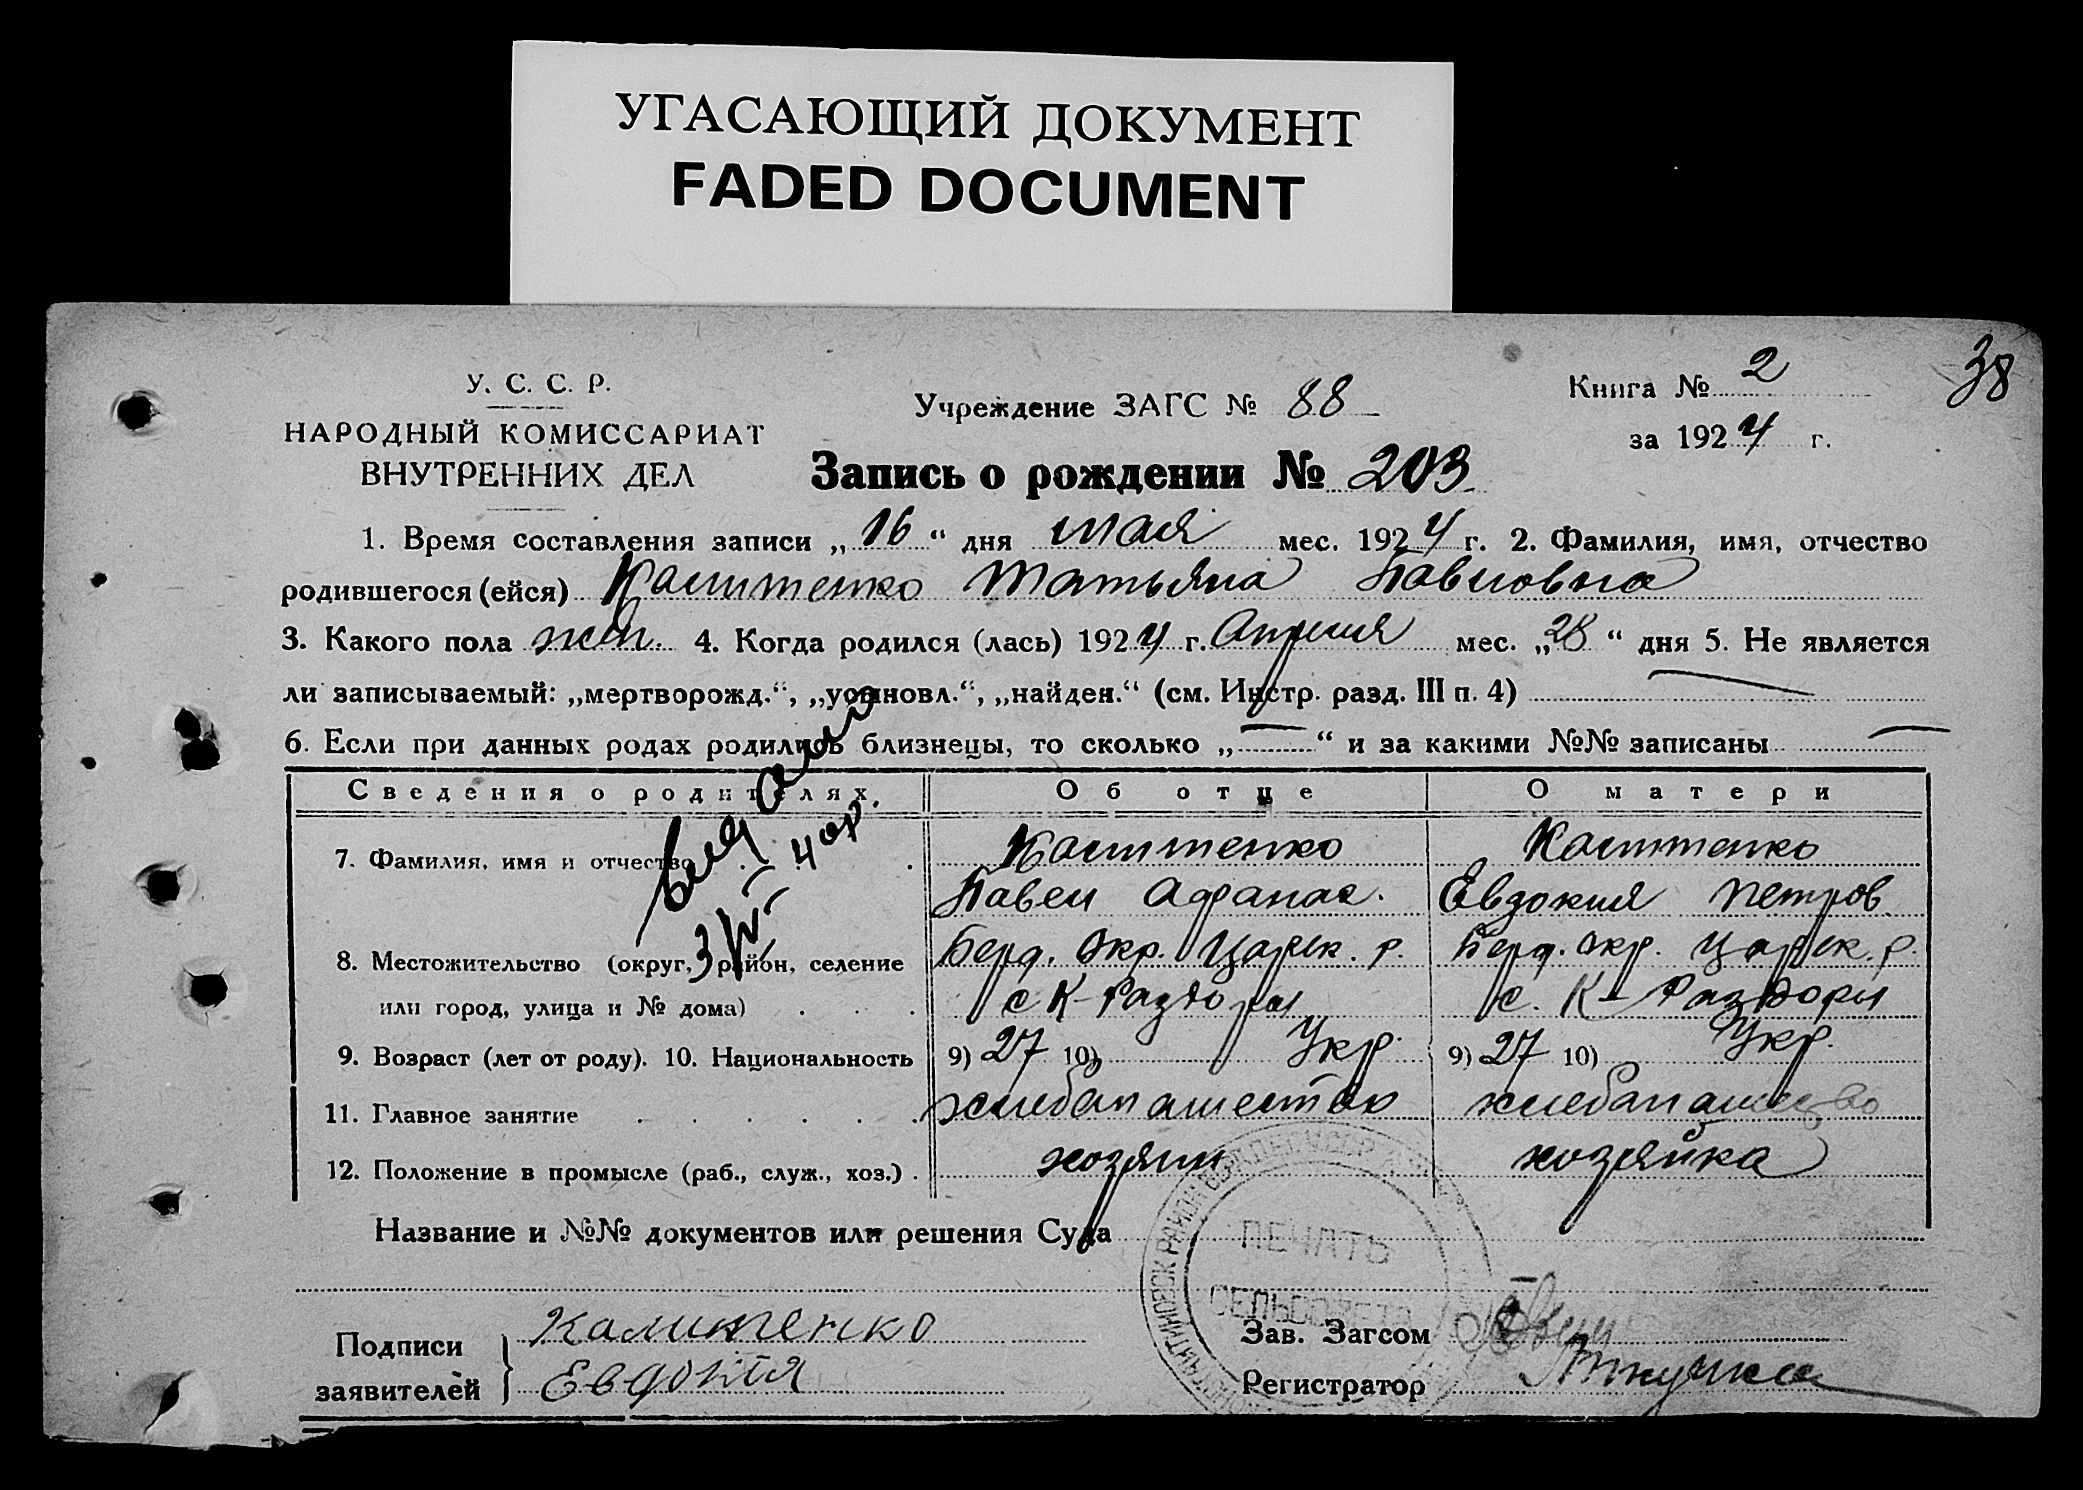 УГАСАЮЩИЙ ДОКУМЕНТ
FADED DOCUMENT
38
У. С. С. Р.
НАРОДНЫЙ КОМИССАРИАТ
ВНУТРЕННИХ ДЕЛ
Учреждение ЗАГС № 88
Книга № 2
за 1924 г.
Запись о рождении № 203
1. Время составления записи „16“ дня мая мес. 1924 г. 2. Фамилия, имя, отчество
родившегося (ейся) Калитенко Татьяна Павловна
3. Какого пола жен. 4. Когда родился (лась) 1924 г. Апреля мес. „28“ дня 5. Не является
ли записываемый: „мертворожд.“, „усыновл.“, „найден.“ (см. Инстр. разд. III п. 4)
6. Если при данных родах родились близнецы, то сколько „—“ и за какими №№ записаны —
Сведения о родителях. Об отце О матери
7. Фамилия, имя и отчество Калитенко Калитенко
Павел Афанас. Евдокия Петров
8. Местожительство (округ, район, селение Берд. Окр. Царек. р. Берд. Окр. Царек. р.
или город, улица и № дома) с К-Раздоры с. К-Раздоры
9. Возраст (лет от роду). 10. Национальность 9) 27 10) Укр. 9) 27 10) Укр.
11. Главное занятие хлебопашество хлебопашество
12. Положение в промысле (раб., служ., хоз.) хозяин хозяйка
Название и №№ документов или решения Суда
ПЕЧАТЬ
СЕЛЬСОВЕТА
Подписи
заявителей
Калитенко
Евдокия
Зав. Загсом
Регистратор